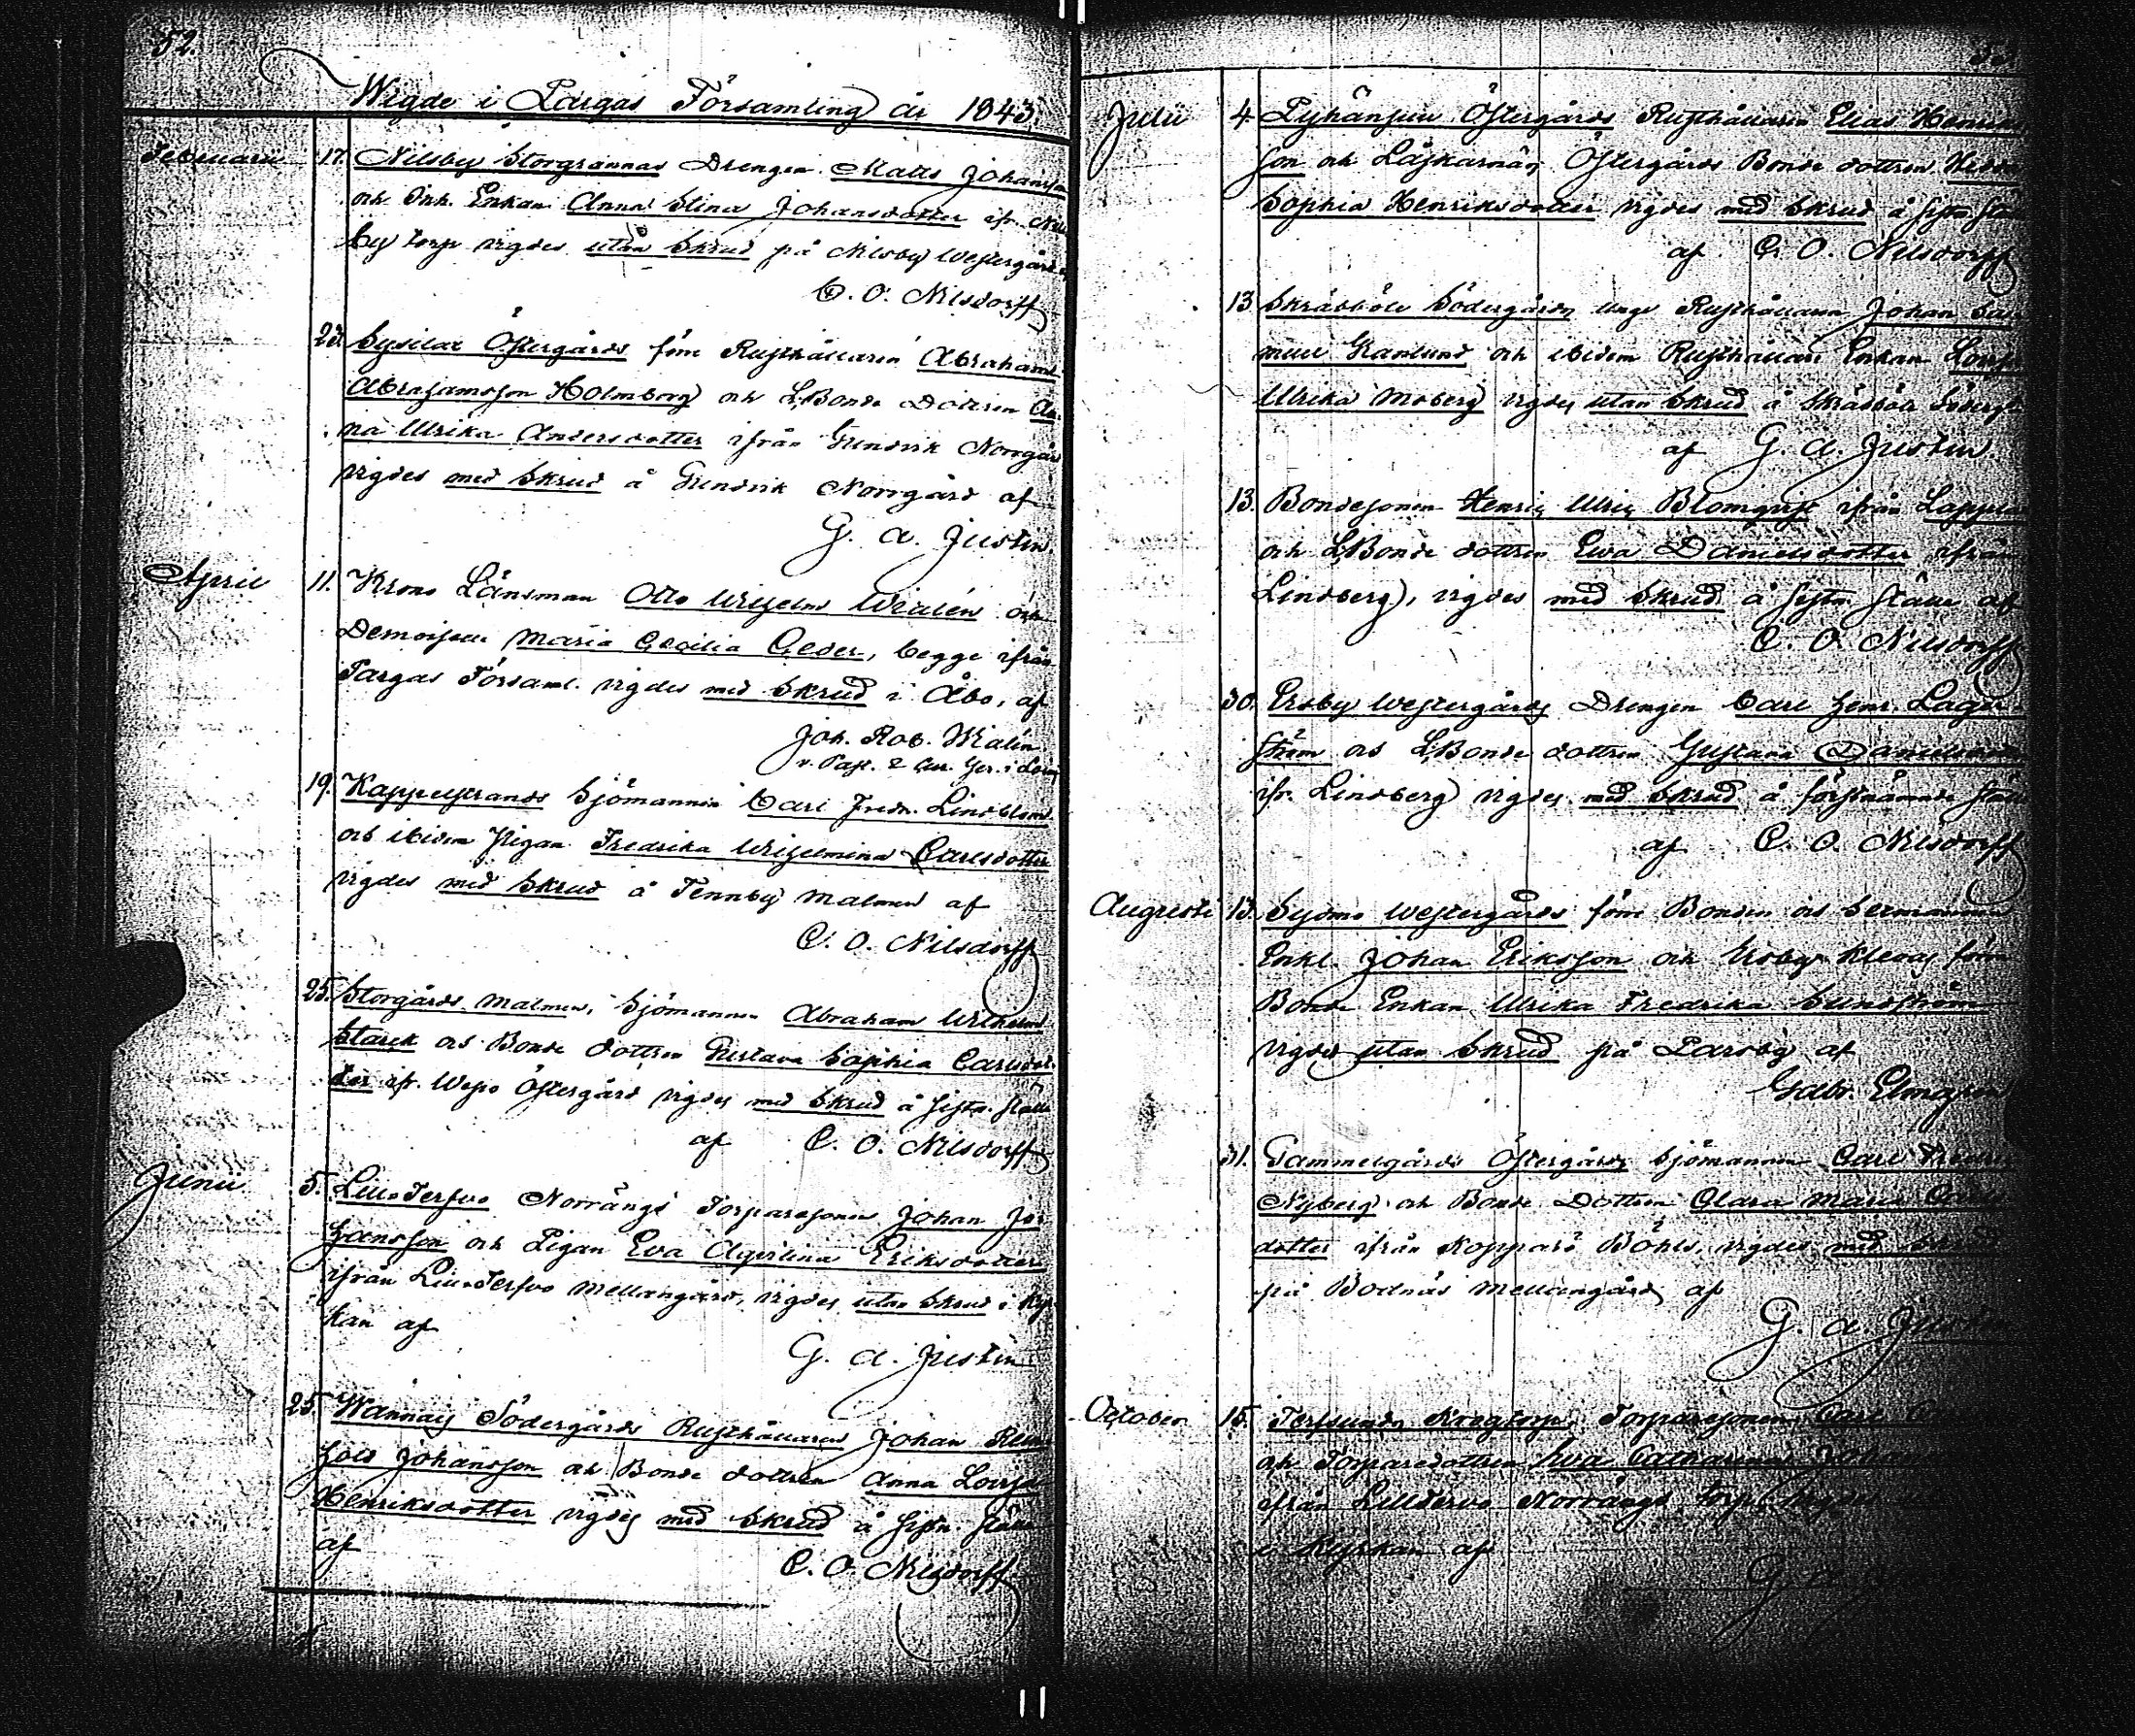 52.
Wigde i Pargas Församling år 1843.
Februarii 17. Nilsby Storgrannas Drengen Matts Johansson
och Inh. Enkan Anna Stina Johansdotter ifr. Nils
by torp vigdes utan Skrud på Nilsby Westergård af
C. O. Nilsdorff
23. Sysilax Östergårds före Rusthållaren Abraham
Abrahamsson Holmberg och L.Bonde Dottren An
na Ulrika Andersdotter ifrån Gundvik Norrgård
vigdes med Skrud å Gundvik Norrgård af
G. A. Justin.
April 11. Krono Länsman Otto Wilhelm Walén och
Demoiselle Maria Cecilia Ceder, begge ifrån
Pargas Församl. vigdes med Skrud i Åbo, af
Joh. Rob. Malin
19. Kappelstrands Sjömannen Carl Fredr. Lindblom
och ibidem Pigan Fredrika Wilhelmina Carlsdotter
vigdes med Skrud å Tennby malmen af
C. O. Nilsdorff
25. Storgårds malmen, Sjömannen Abraham Wilhelm
Starck och Bonde dottren Gustava Sophia Carlsdot
ter ifr. Wepo Östergård vigdes med Skrud å sistn. ställe
af C. O. Nilsdorff
Junii 5. Lill-Tervo Norrängs Torparesonen Johan Jo
hansson och Pigan Eva Agrelina Eriksdotter
ifrån Lill-Tervo Mellangård, vigdes utan Skrud i Kyr
kan af
G. A. Justin
25. Wannais Södergårds Rusthållaren Johan Rein
hold Johansson och Bonde dottren Anna Lovisa
Henriksdotter vigdes med Skrud å sistn. ställe
af
C. O. Nilsdorff.
Julii 4. Östergårds Rusthållaren Elias Henriks
son och Läskarnäs Östergårds Bonde dottren
Sophia Henriksdotter vigdes med Skrud å sistn. ställe
af C. O. Nilsdorff
13 Skräbböle Södergårds unge Rusthållaren Johan Sa
muel Granlund och ibidem Rusthållare Enkan Lovisa
Ulrika Moberg vigdes utan Skrud å Skräbböle Södergård
af G. A. Justin.
13. Bondesonen Henric Ulric Blomqvist ifrån
och L.Bonde dottren Ewa Danielsdotter ifrån
Lindberg, vigdes med Skrud å sistn. ställe af
C. O. Nilsdorff
30. Ersby Westergårds Drengen Carl Henr. Lager
ström och L.Bonde dottren Gustava Danielsdotter
ifr. Lindberg vigdes med Skrud å förstnämnde ställe
af C. O. Nilsdorff
Augusti 13. Sydmo Westergårds före Bonden och
Enkl. Johan Eriksson och Ersby Klevas före
Bonde Enkan Ulrika Fredrika Sundström
vigdes utan Skrud på Parsby af
Gabr. Elmgren
31. Gammelgårds Östergårds Sjömannen Carl Fredric
Nyberg och Bonde Dottren Clara Maria Carls
dotter ifrån Kopparö Böhls, vigdes med Skrud
på Bodnäs Mellangård af
G. A. Justin
October 15. Krogtorp, Torparesonen Carl
och Torparedottren Eva Catharina
ifrån Lilltervo Norrängs torp, vigdes
i Kyrkan af
G. A.